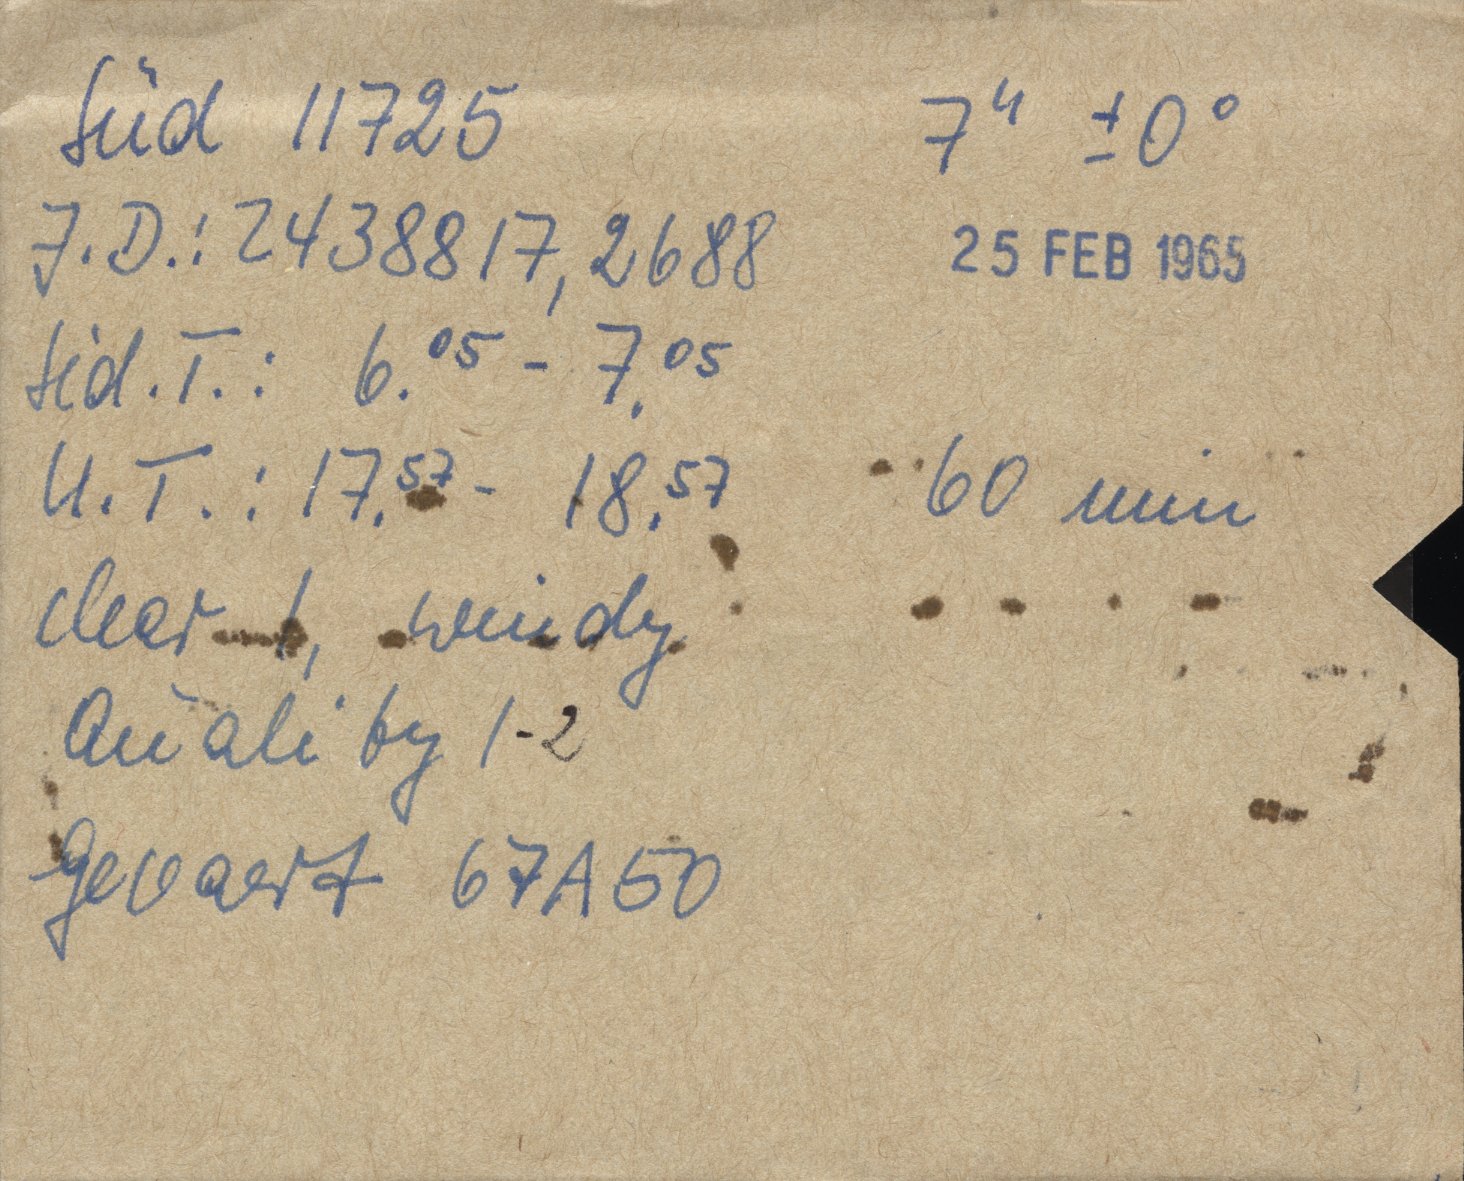 Süd 11725 7ʰ ±0°
J.D.: 2438817,2688 25 FEB 1965
Sid.T.: 6.⁰⁵ - 7.⁰⁵
U.T.: 17.⁵⁷ - 18.⁵⁷ 60 min
clear 1, windy
Quality 1-2
Gevaert 67A50